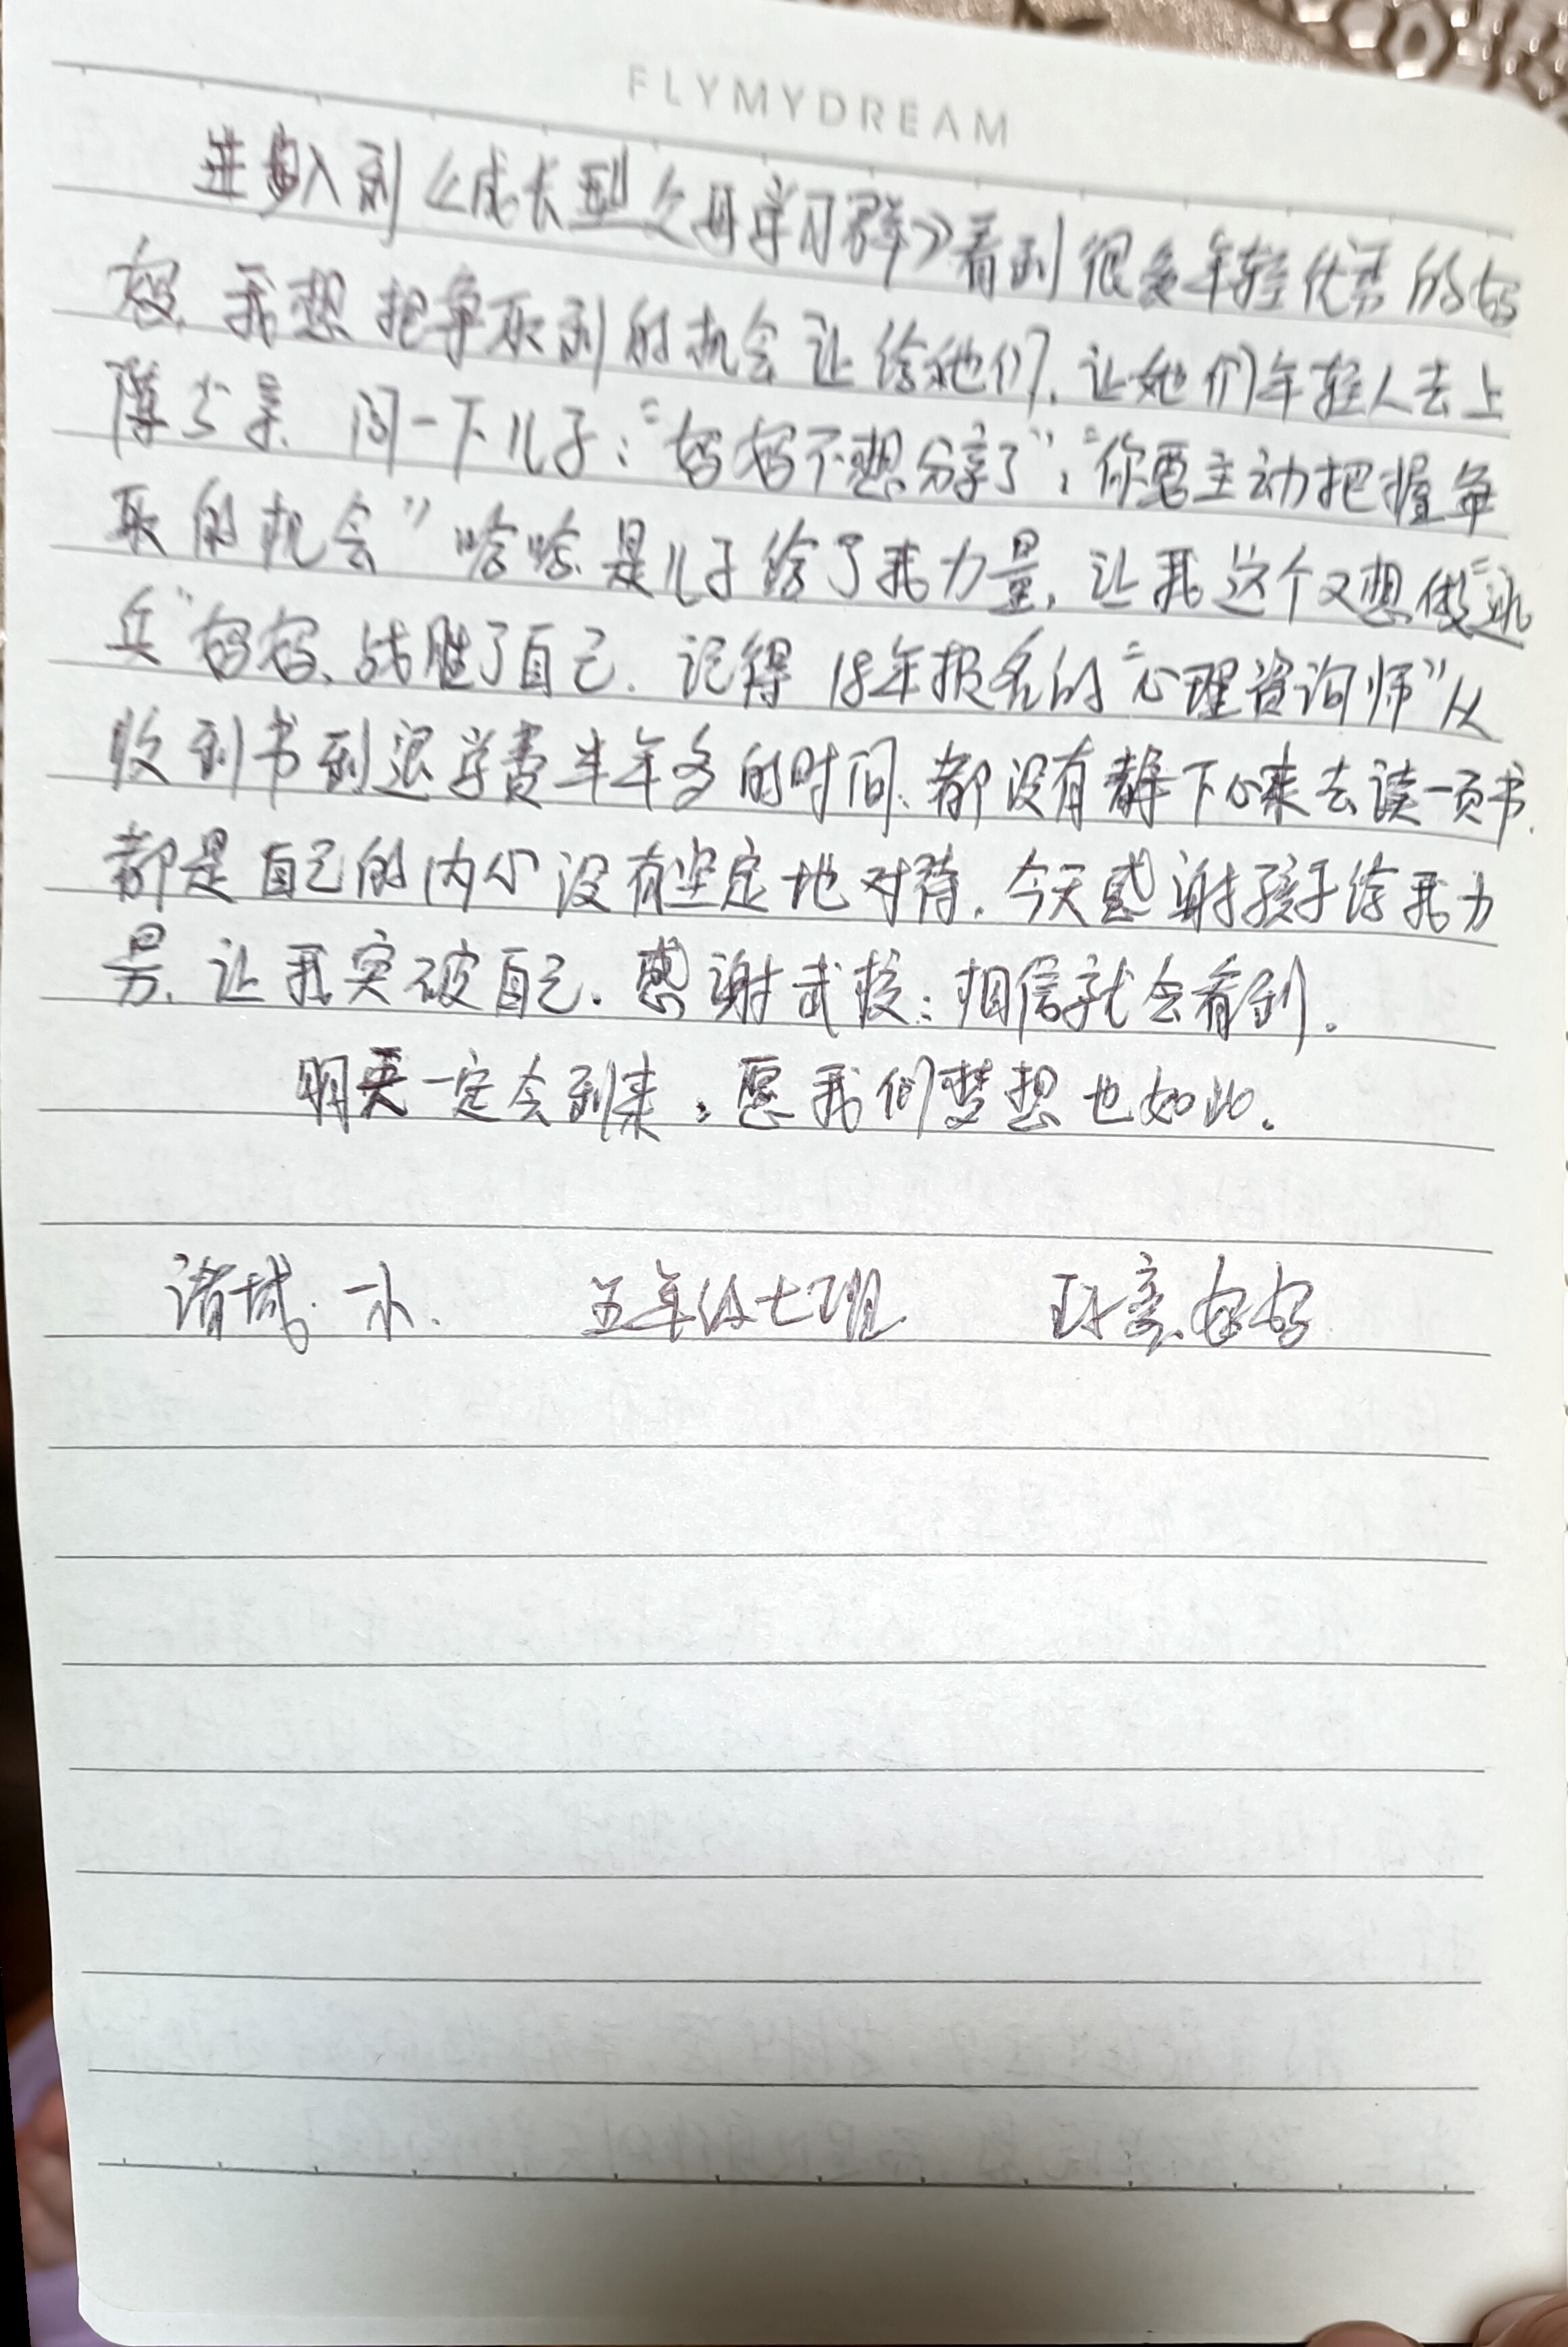 FLYMYDREAM
进入到《成长型父母学习群》看到很多年轻优秀的妈
妈，我想把争取到的机会让给她们，让她们年轻人去上
阵 问一下儿子：“妈妈不想分享了”；“你要主动把握争
取的机会”哈哈，是儿子给了我力量，让我这个又想做“逃
兵”妈妈，战胜了自己。记得18年报名的“心理咨询师”从
收到书到退学费半年多的时间，都没有静下心来去读一页书，
都是自己的内心没有坚定地对待。今天感谢孩子给我力
量，让我突破自己。感谢武校：相信就会看到。
明天一定会到来，愿我们梦想也如此。
诸城一小 五年级七班 妈妈